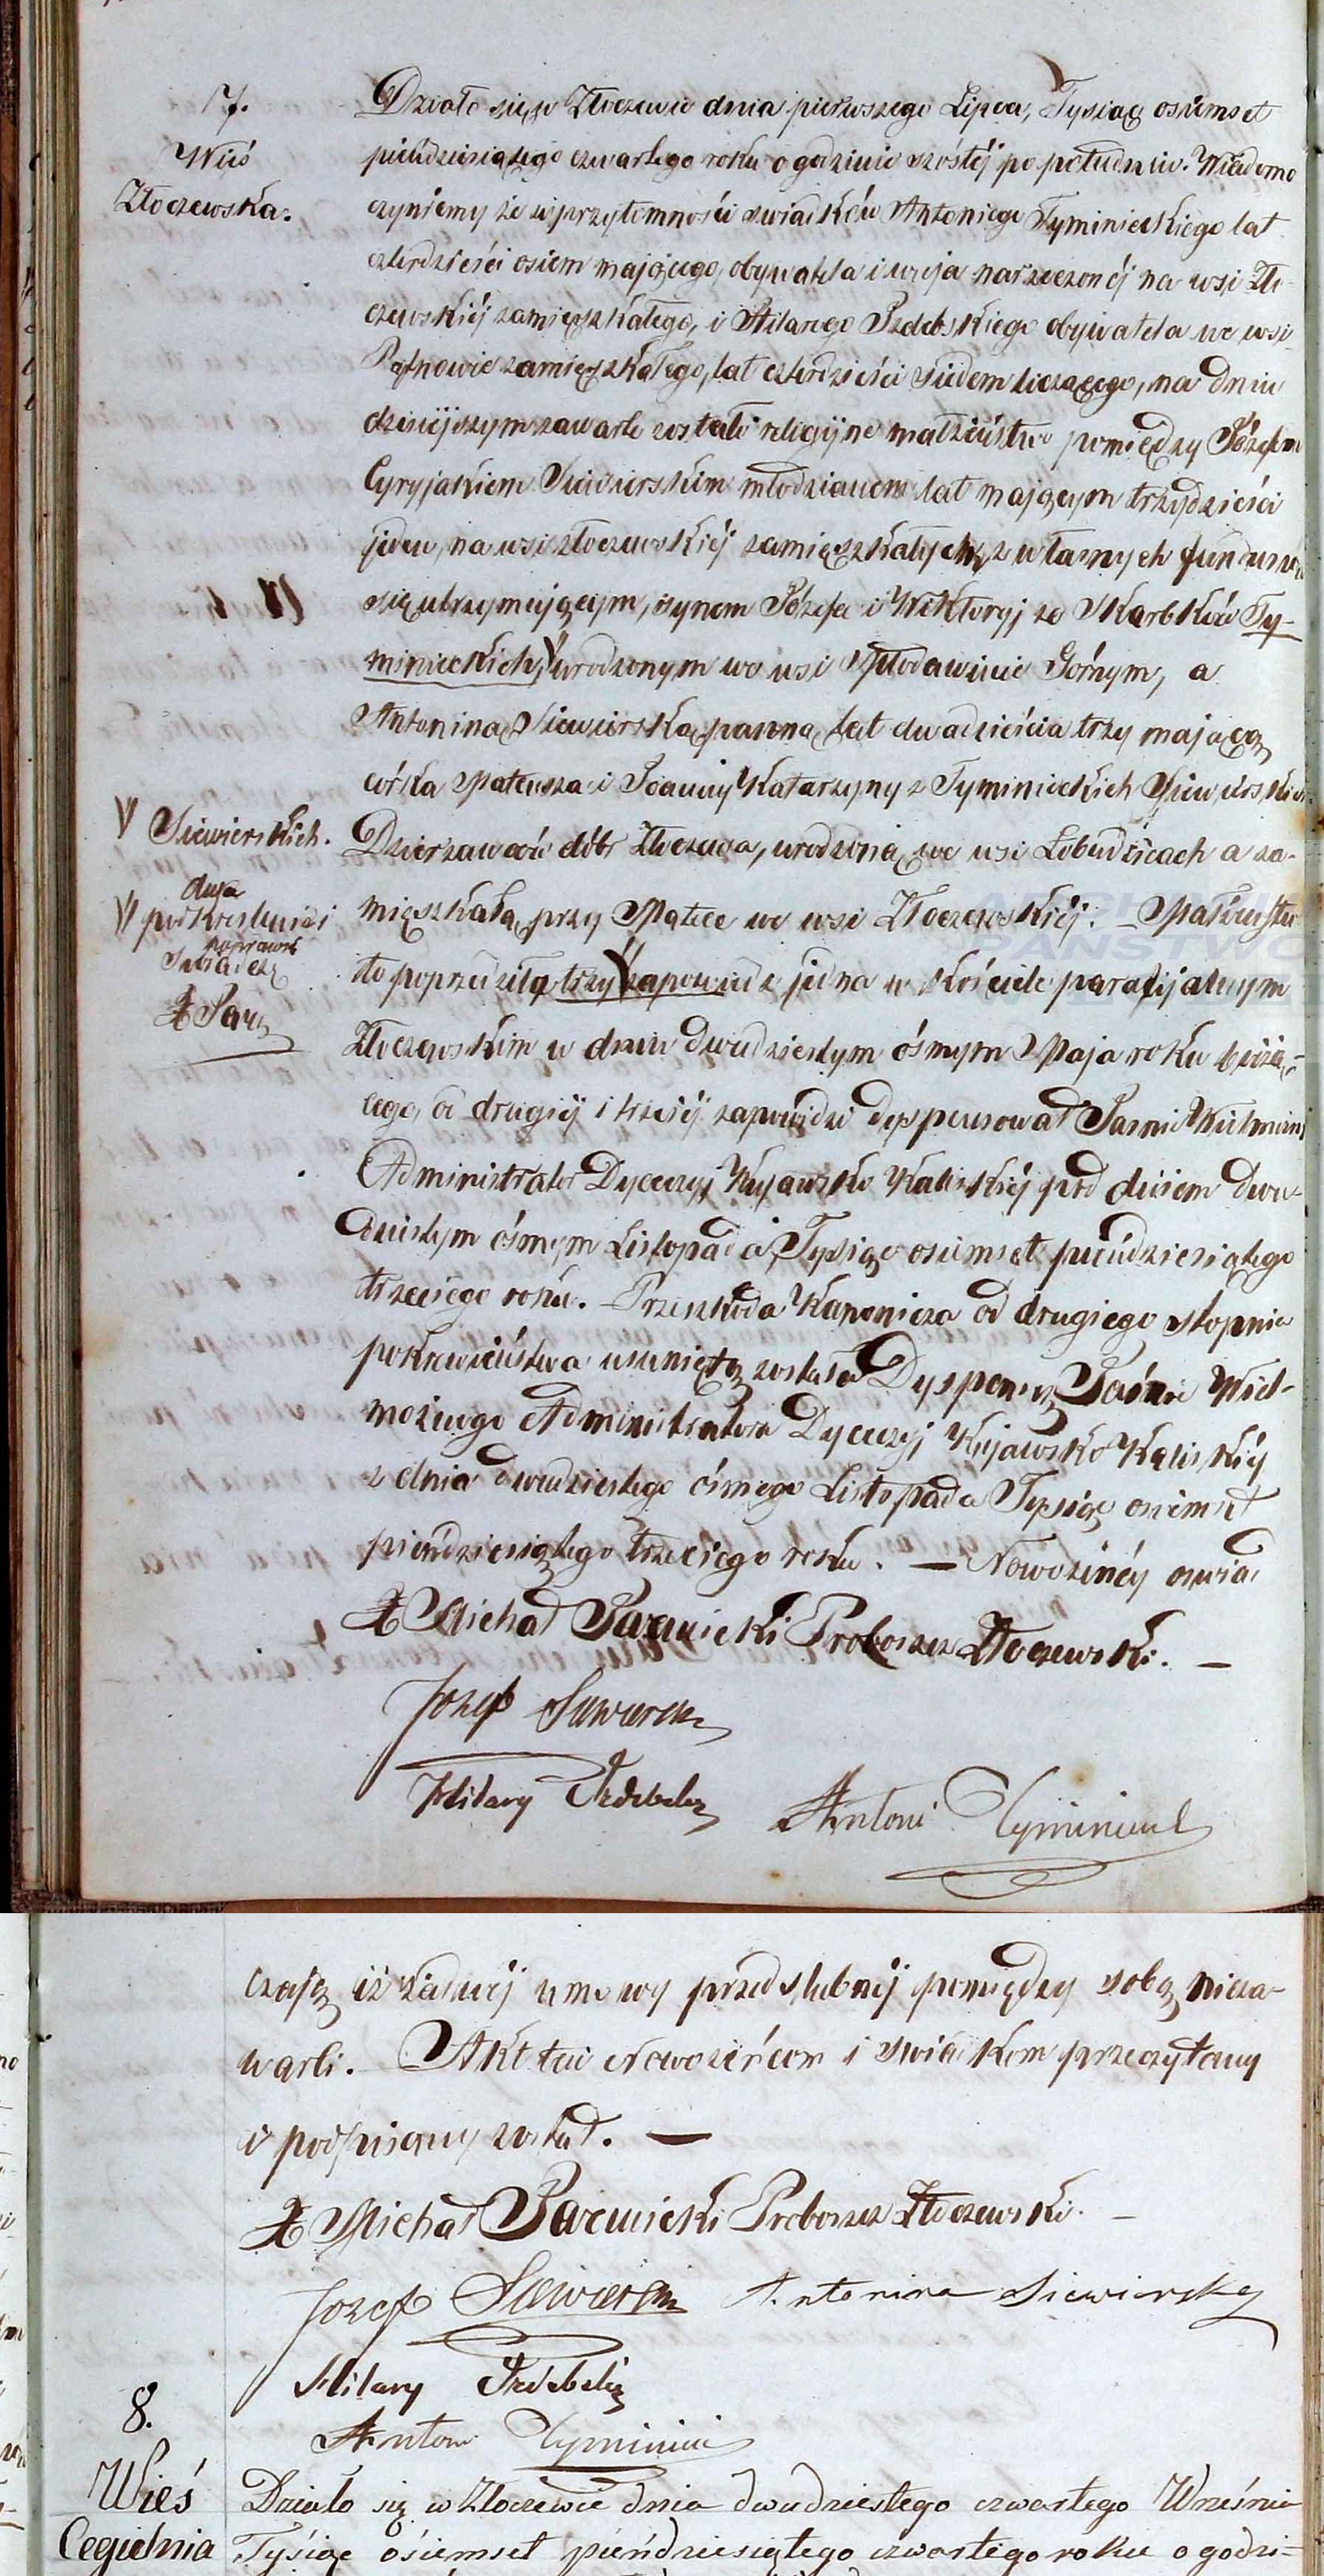 7.
Wieś
Złoczewska.
Działo się w Złoczewie dnia pierwszego Lipca, Tysiąc osiemset
pięćdziesiątego czwartego roku o godzinie szóstéj po południu. Wiadomo
czyniemy że w przytomności swiadków Antoniego Tyminieckiego lat
czterdzieści osiem mającego, obywatela i wuja narzeczonéj na wsi Zło-
czewskiéj zamięszkałego, i Hilarego obywatela we wsi
Pątnowie zamięszkałego, lat czterdzieści siedem liczącego, na dniu
dzisiéjszym zawarte zostało religijne małżeństwo pomiędzy Józefem
Cyryjakiem Siewierskim młodzianem lat mającym trzydzieści
jeden, na wsi złoczewskiéj zamięszkałych, z własnych funduszów
się utrzymującym, synem Józefa i Wiktoryj ze Skarbków Ty-
minieckich, urodzonym we wsi Włodawinie Górnym, a
Antoniną Siewierską panną lat dwadzieścia trzy mającą
córką Mateusza i Joanny Katarzyny z Tyminieckich Siewierskich
V Siewierskich.
Dzierzawców dóbr Złoczewa, urodzoną we wsi Łobudzicach a za-
V podkreślenie i
poprawę
Świadczę
X Par
mięszkałą przy Matce we wsi Złoczewskiéj. – Małżeństwo
to poprzedziła trzy V zapowiedz jedna w Kościele parafijalnym
Złoczewskim w dniu dwudziestym ósmym Maja roku bieżą-
cego, od drugiéj i trzeciéj zapowiedzi dyspensował Jasnie Wielmożny
Administrator Dyecezyj Kujawsko Kaliskiéj pod dniem dwu-
dziestym ósmym Listopada Tysiąc osiemset pięćdziesiątego
trzeciego roku. – Przeszkoda Kanonicza od drugiego stopnia
pokrewieństwa usuniętą została Dyspensą Jaśnie Wiel-
możnego Administratora Dyecezyj Kujawsko Kaliskiéj
z dnia dwudziestego ósmego Listopada Tysiąc osiemset
pięćdziesiątego trzeciego roku. — Nowożeńcy oswiad
X Michał Parnicki Proboszcz Złoczewski. –
Jozef Siewierski
Hilary
Antoni Tyminiecki
czają iż żadnéj umowy przedslubnéj pomiędzy sobą nieza-
warli. Akt ten Nowożeńcom i swiadkom przeczytany
i podpisany został. —
X Michał Parnicki Proboszcz Złoczewski. –
Jozef Siewierski Antonina Siewierska
Hilary
Antoni Tyminiecki
8.
Wieś
Cegielnia
Działo się w Złoczewie dnia dwudziestego czwartego Września
Tysiąc ośiemset pięńdziesiątego czwartego roku o godzi-